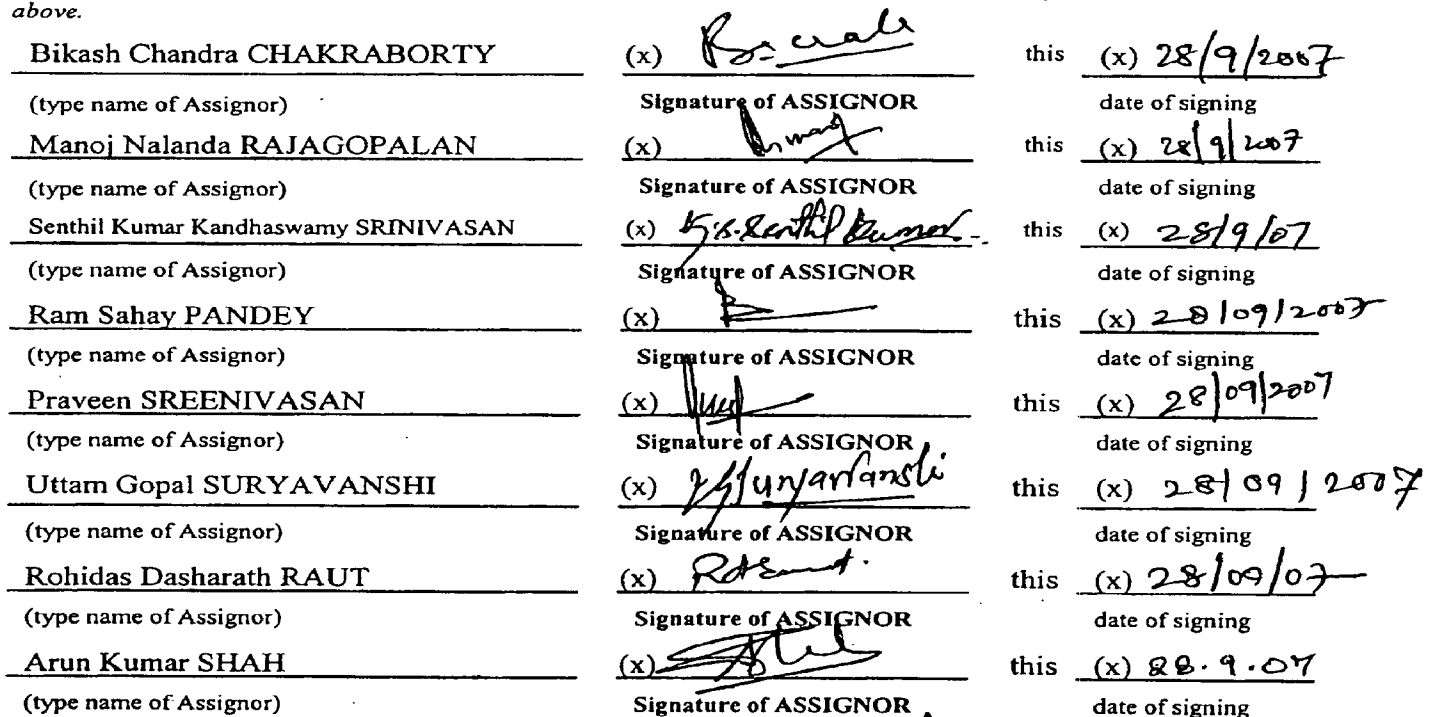 above.
Bikash Chandra CHAKRABORTY (x) this (x) 28/9/2007
(type name of Assignor) Signature of ASSIGNOR date of signing
Manoj Nalanda RAJAGOPALAN (x) this (x) 28/9/2007
(type name of Assignor) Signature of ASSIGNOR date of signing
Senthil Kumar Kandhaswamy SRINIVASAN (x) K.S. Senthil Kumar this (x) 28/9/07
(type name of Assignor) Signature of ASSIGNOR date of signing
Ram Sahay PANDEY (x) this (x) 28/09/2007
(type name of Assignor) Signature of ASSIGNOR date of signing
Praveen SREENIVASAN (x) this (x) 28/09/2007
(type name of Assignor) Signature of ASSIGNOR date of signing
Uttam Gopal SURYAVANSHI (x) this (x) 28/09/2007
(type name of Assignor) Signature of ASSIGNOR date of signing
Rohidas Dasharath RAUT (x) this (x) 28/09/07
(type name of Assignor) Signature of ASSIGNOR date of signing
Arun Kumar SHAH (x) this (x) 28.9.07
(type name of Assignor) Signature of ASSIGNOR date of signing